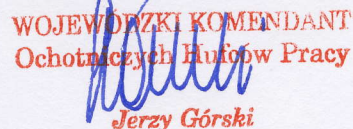 WOJEWÓDZKI KOMENDANT
Ochotniczych Hufców Pracy
Jerzy Górski